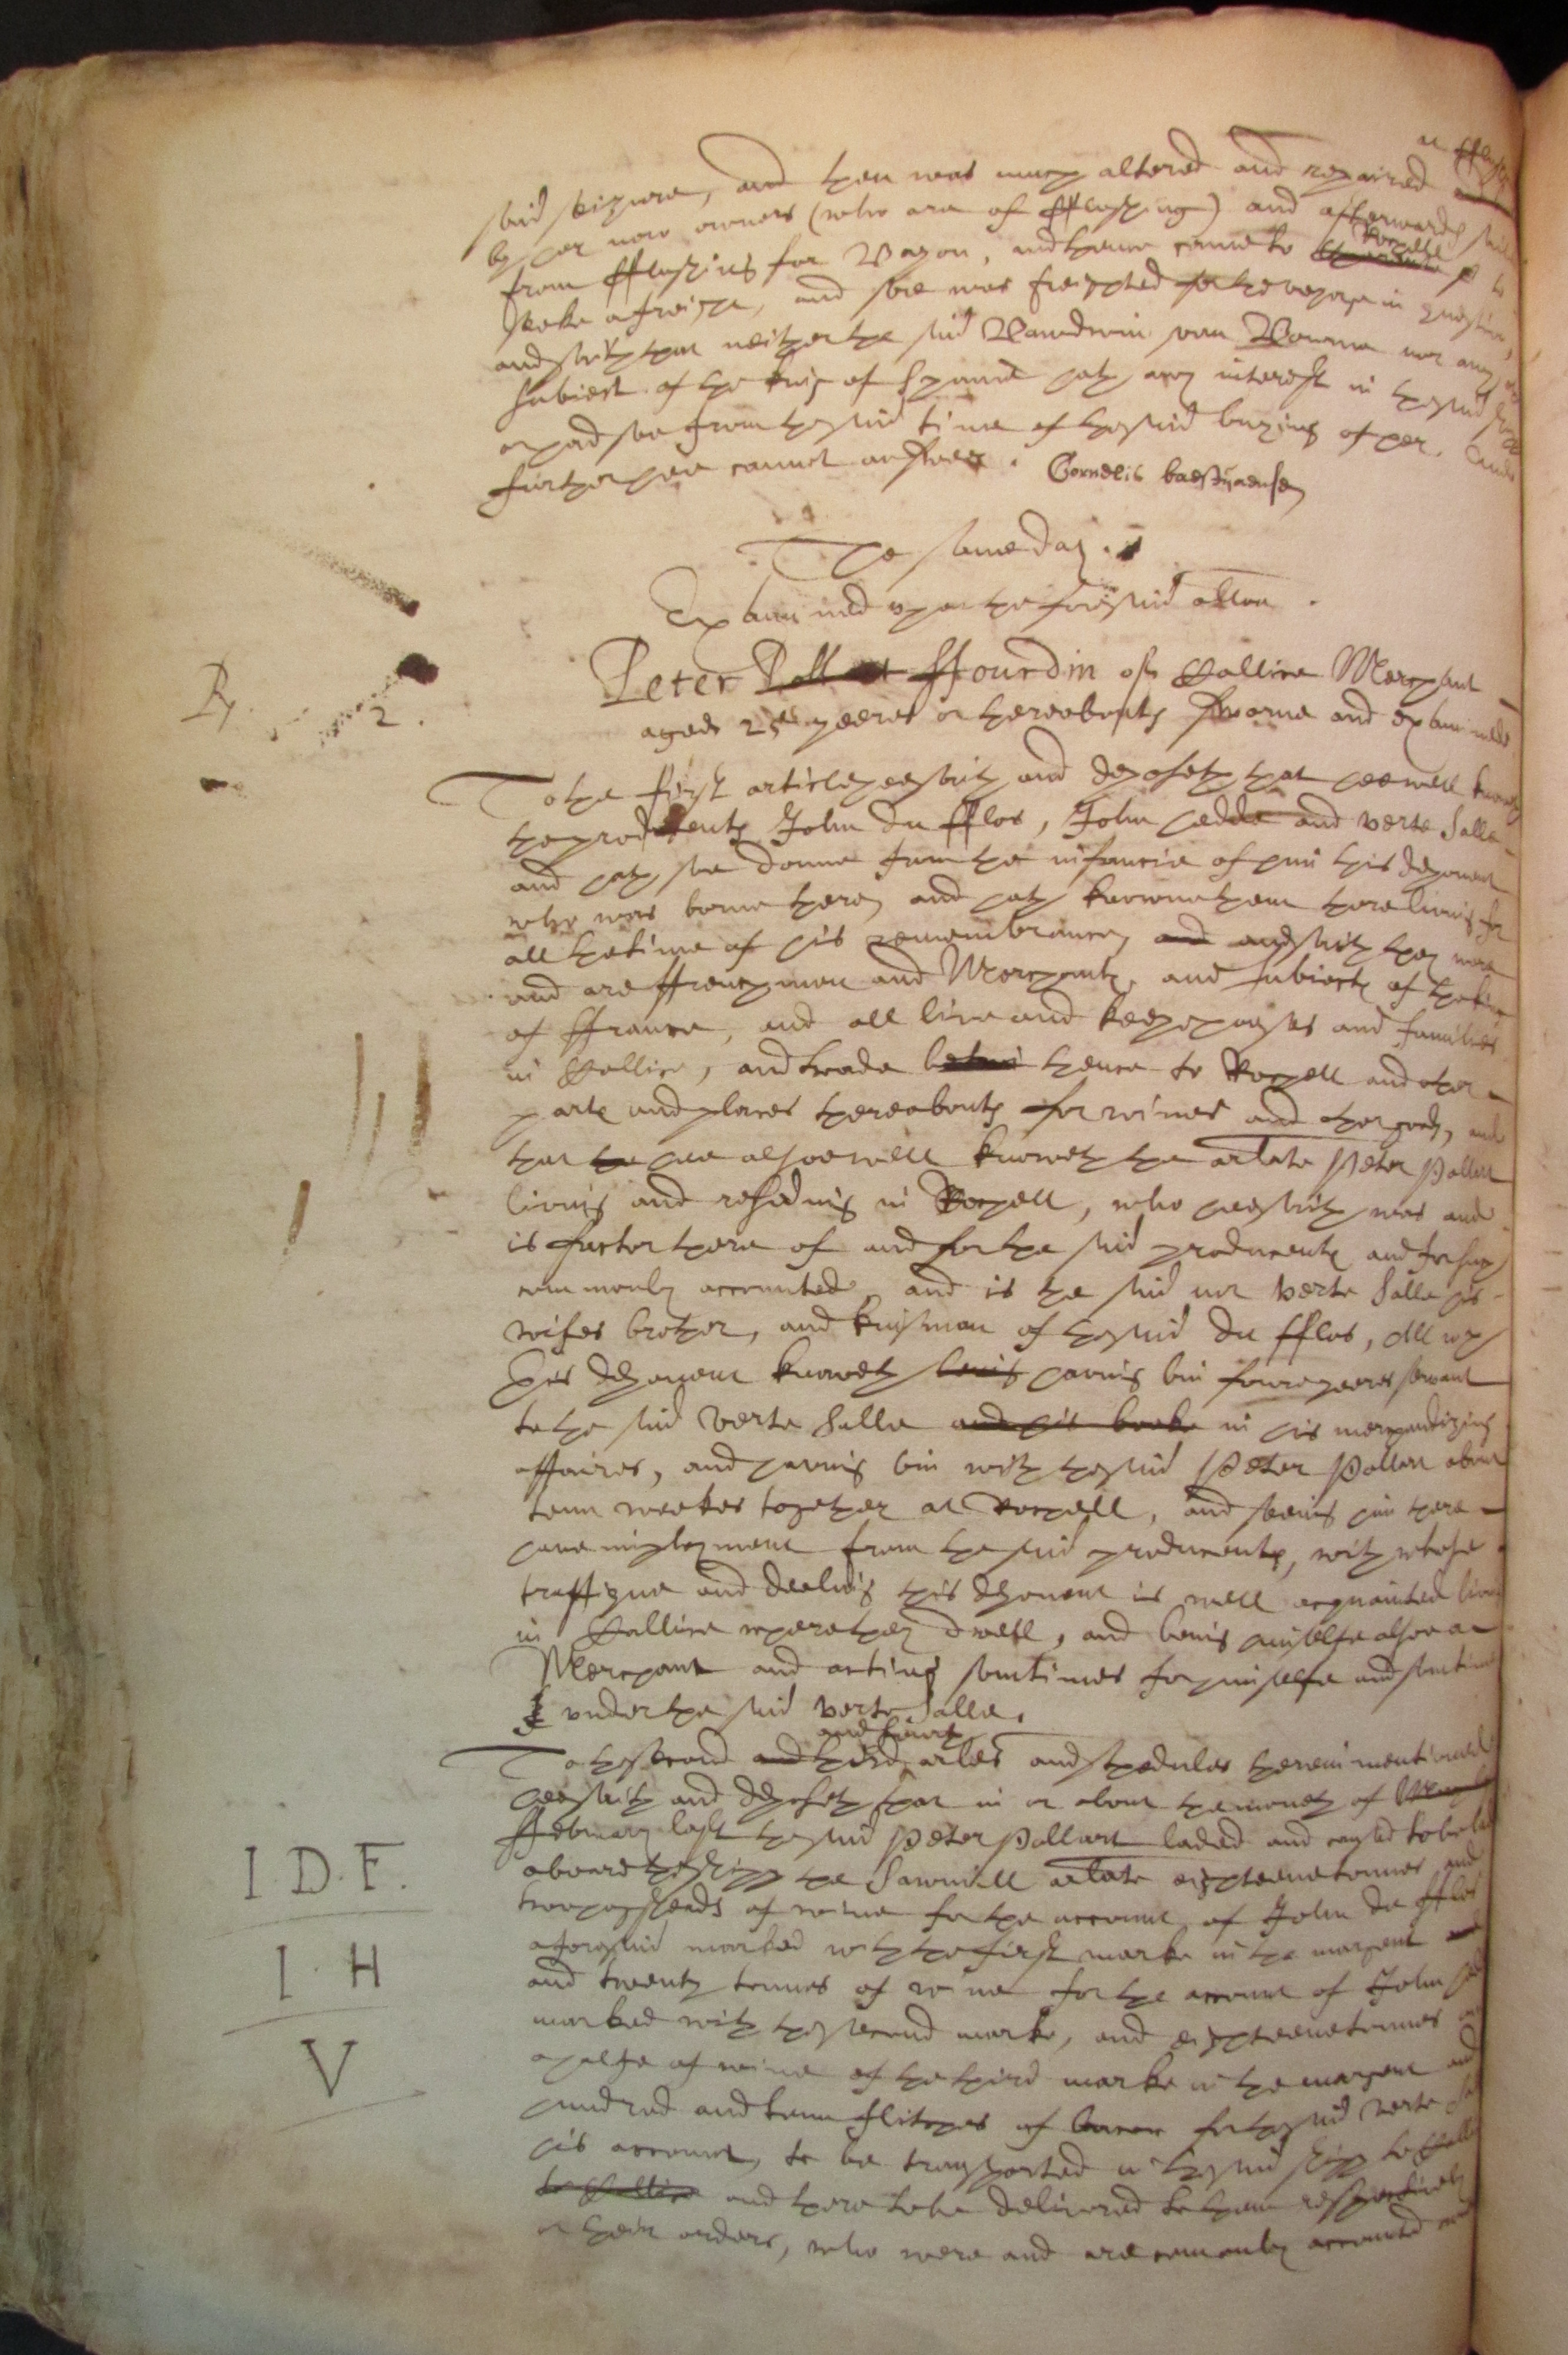 at fflushing
said seizure, and then was much altered and repaired
by her now owners (who are of fflushing) and afterwards
from fflushing for Bayon, and thence came to Rochell to
seeke a freight, and soe was freighted for the voyage in question,
and saith that neither the said Bawdwin van Bourne nor any
subiect of the king of Spaine hath any interest in the said shipp
or had soe from the said time of the said buying of her. And
further hee cannot answer. Cornelis baestiaensen
The same day.
Examined upon the foresaid allon.
Peter Pollart Hourdin of Callice Merchant
aged 25 yeeres or thereabouts sworne and examined
Rp. 2.
To the first article hee saith and deposeth that hee well knoweth
the producents John du fflos, John hedde and verte Salle
and hath soe donne from the infancie of him this deponent
who was borne there, and hath knowne them there living for
all the time of his remembrance, and and saith they were
and are ffrenchmen and Merchants, and subiects of the king
of ffrance, and all live and keepe howses and families
in Callice, and trade thence to Rochell and other
parts and places thereabouts for wines and other goods, and
that hee alsoe well knoweth the arlate Peter Pollart
living and residing in Rochell, who hee saith was and
is factor there of and for the said producents and for such
commonly accounted, and is the said verte Salle his
wifes brother, and kinsman of the said du fflos, All wch
this deponent knoweth being having bin foure yeeres servant
to the said verte Salle and his booke in his merchandizing
affaires, and having bin with the said Peter Pollart about
tenn weekes together at Rochell, and seeing him there
have imployment from the said producents, with whose
traffique and dealing this deponent is well acquainted living
in Callice where they dwell, and being himselfe alsoe a
Merchant and acting somtimes for himselfe and somtimes
under the said verte Salle.
and fourth
To the second and third arles and schedules therein mentioned
hee saith and deposeth that in or about the moneth of
ffebruary last the said Peter Pollart laded and caused to be laden
aboard the shipp the Sawmill arlate eighteene tonnes and
two hogsheads of wine for the account of John du fflos
aforesaid marked with the first marke in the margent
and twenty tonnes of wine for the account of John hedde
marked with the second marke, and eighteene tonnes and
a halfe of wine of the third marke in the margent and
hundred and tenn flitches of bacon for the said verte Salle
his account, to be transported in the said shipp to Callice
to Callice and there to be delivered to them respectively
or their orders, who were and are comonly accounted
I. D. F.
I. H
V